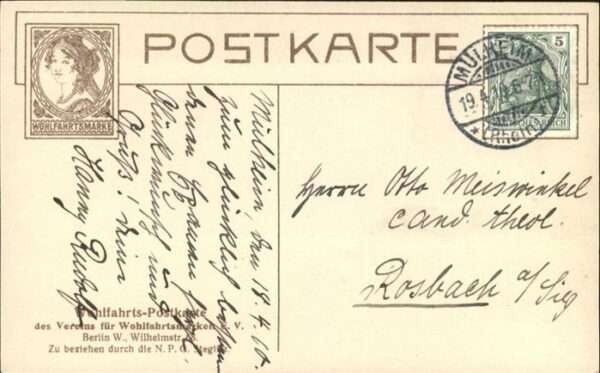 POSTKARTE
WOHLFAHRTSMARKE
5
MÜLHEIM
19.4.10.6-7
(RHEIN)
Mülheim, den 18.4.10.
zum glücklich bestan
denen Examen herzl.
Glückwunsch und
Gruß! Deine
Hanny
Herrn Otto Meiswinkel
cand. theol.
Rosbach a/Sieg
Wohlfahrts-Postkarte
des Vereins für Wohlfahrtsmarken E. V.
Berlin W., Wilhelmstr.
Zu beziehen durch die N. P. G. Steglitz.